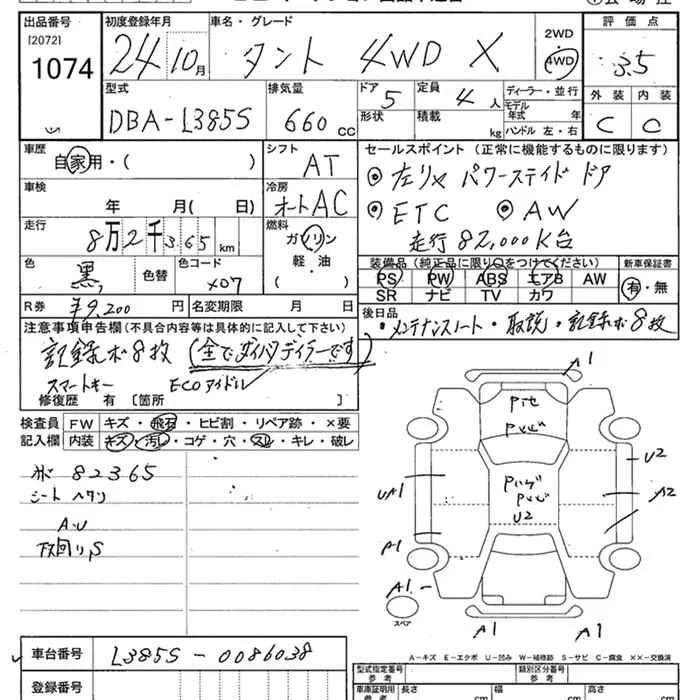 出品番号 初度登録年月 車名・グレード 2WD 4WD 評価点
[2072] 1074 24 10月 タント 4WD X 3.5
型式 排気量 ドア 定員 ディーラー・並行 外装 内装
DBA-L385S 660cc 5 4人 モデル年式 年式 C C
形状 積載 kg ハンドル 左・右
車歴 シフト セールスポイント(正常に機能するものに限ります)
自家用・( ) AT 左リヤ パワースライドドア
車検 冷房 ETC AW
年 月( 日) オートAC 走行82,000K台
走行 燃料
8万2千365km ガソリン 軽・油
装備品(純正品に限り○をつけてください) 新車保証書
色 色替 色コード PS PW ABS エアB AW 有・無
黒 X07 ( ) SR ナビ TV カワ
R券 ¥9,200円 名変期限 月 日 後日品
注意事項申告欄(不具合内容等は具体的に記入して下さい) ・メンテナンスノート・取説・記録ボ8枚
記録ボ8枚(全てダイハツディラーです)
スマートキー ECOアイドル
修復歴 有〔箇所 〕
検査員 FW キズ・飛石・ヒビ割・リペア跡・×要
記入欄 内装 キズ・汚レ・コゲ・穴・スレ・キレ・破レ
82365
シート ヘタリ
A・U
下回り S
A1
P
U2
UA1
A2
U2
A1
A1
スペア
A1 A1
A-キズ E-エクボ U-凹み W-補修跡 S-サビ C-腐食 ××-交換済
車台番号 L385S-0086038 型式指定番号 参考 類別区分番号 参考
登録番号 車庫証明用 参考 長さ cm 幅 cm 高さ cm